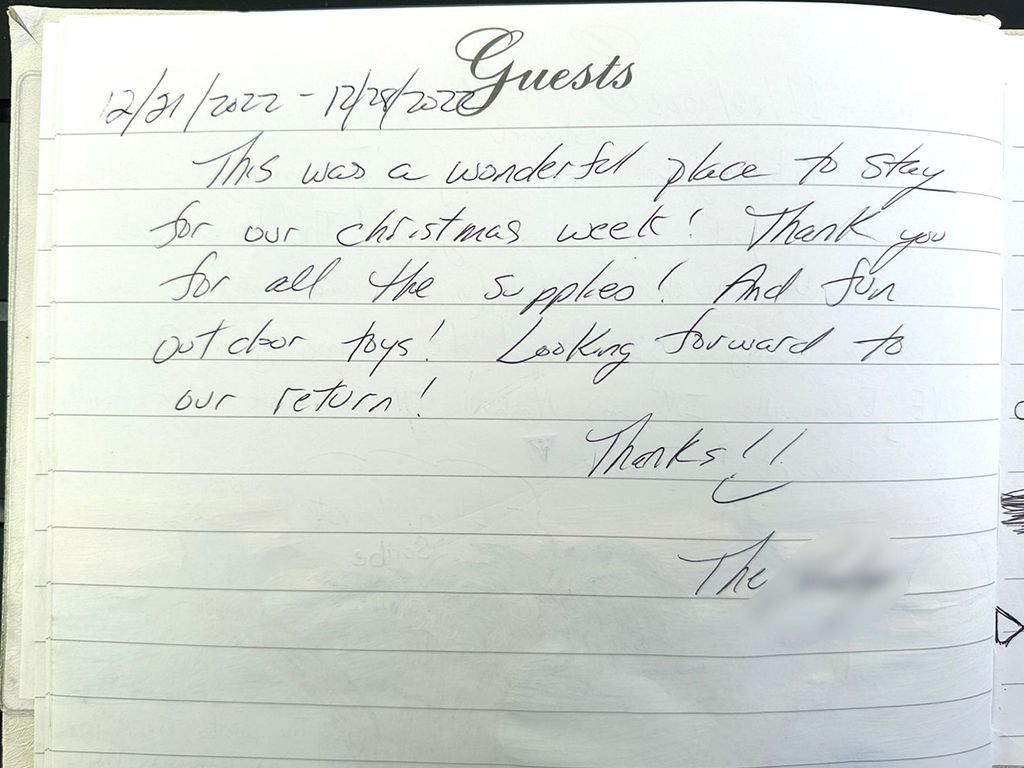 Guests
12/21/2022 - 12/28/2022
This was a wonderful place to stay
for our christmas week! Thank you
for all the supplies! And fun
outdoor toys! Looking forward to
our return!
Thanks!!
The